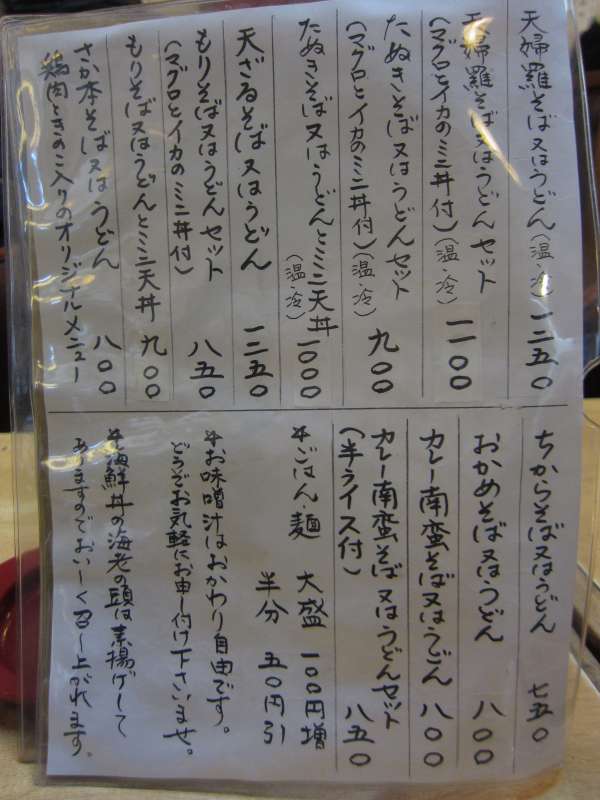 天婦羅そば又はうどん(温・冷) 一二五〇
天婦羅そば又はうどんセット 一一〇〇
(マグロとイカのミニ丼付)(温・冷)
たぬきそば又はうどんセット 九〇〇
(マグロとイカのミニ丼付)(温・冷)
たぬきそば又はうどんとミニ天丼 一〇〇〇
(温・冷)
天ざるそば又はうどん 一二五〇
もりそば又はうどんセット 八五〇
(マグロとイカのミニ丼付)
もりそば又はうどんとミニ天丼 九〇〇
さか本そば又はうどん 八〇〇
鶏肉ときのこ入りのオリジナルメニュー
ちからそば又はうどん 七五〇
おかめそば又はうどん 八〇〇
カレー南蛮そば又はうどん 八〇〇
カレー南蛮そば又はうどんセット 八五〇
(半ライス付)
*ごはん・麺 大盛 一〇〇円増
半分 五〇円引
*お味噌汁はおかわり自由です。
どうぞお気軽にお申し付け下さいませ。
*海鮮丼の海老の頭は素揚げして
ありますのでおいしく召し上がれます。